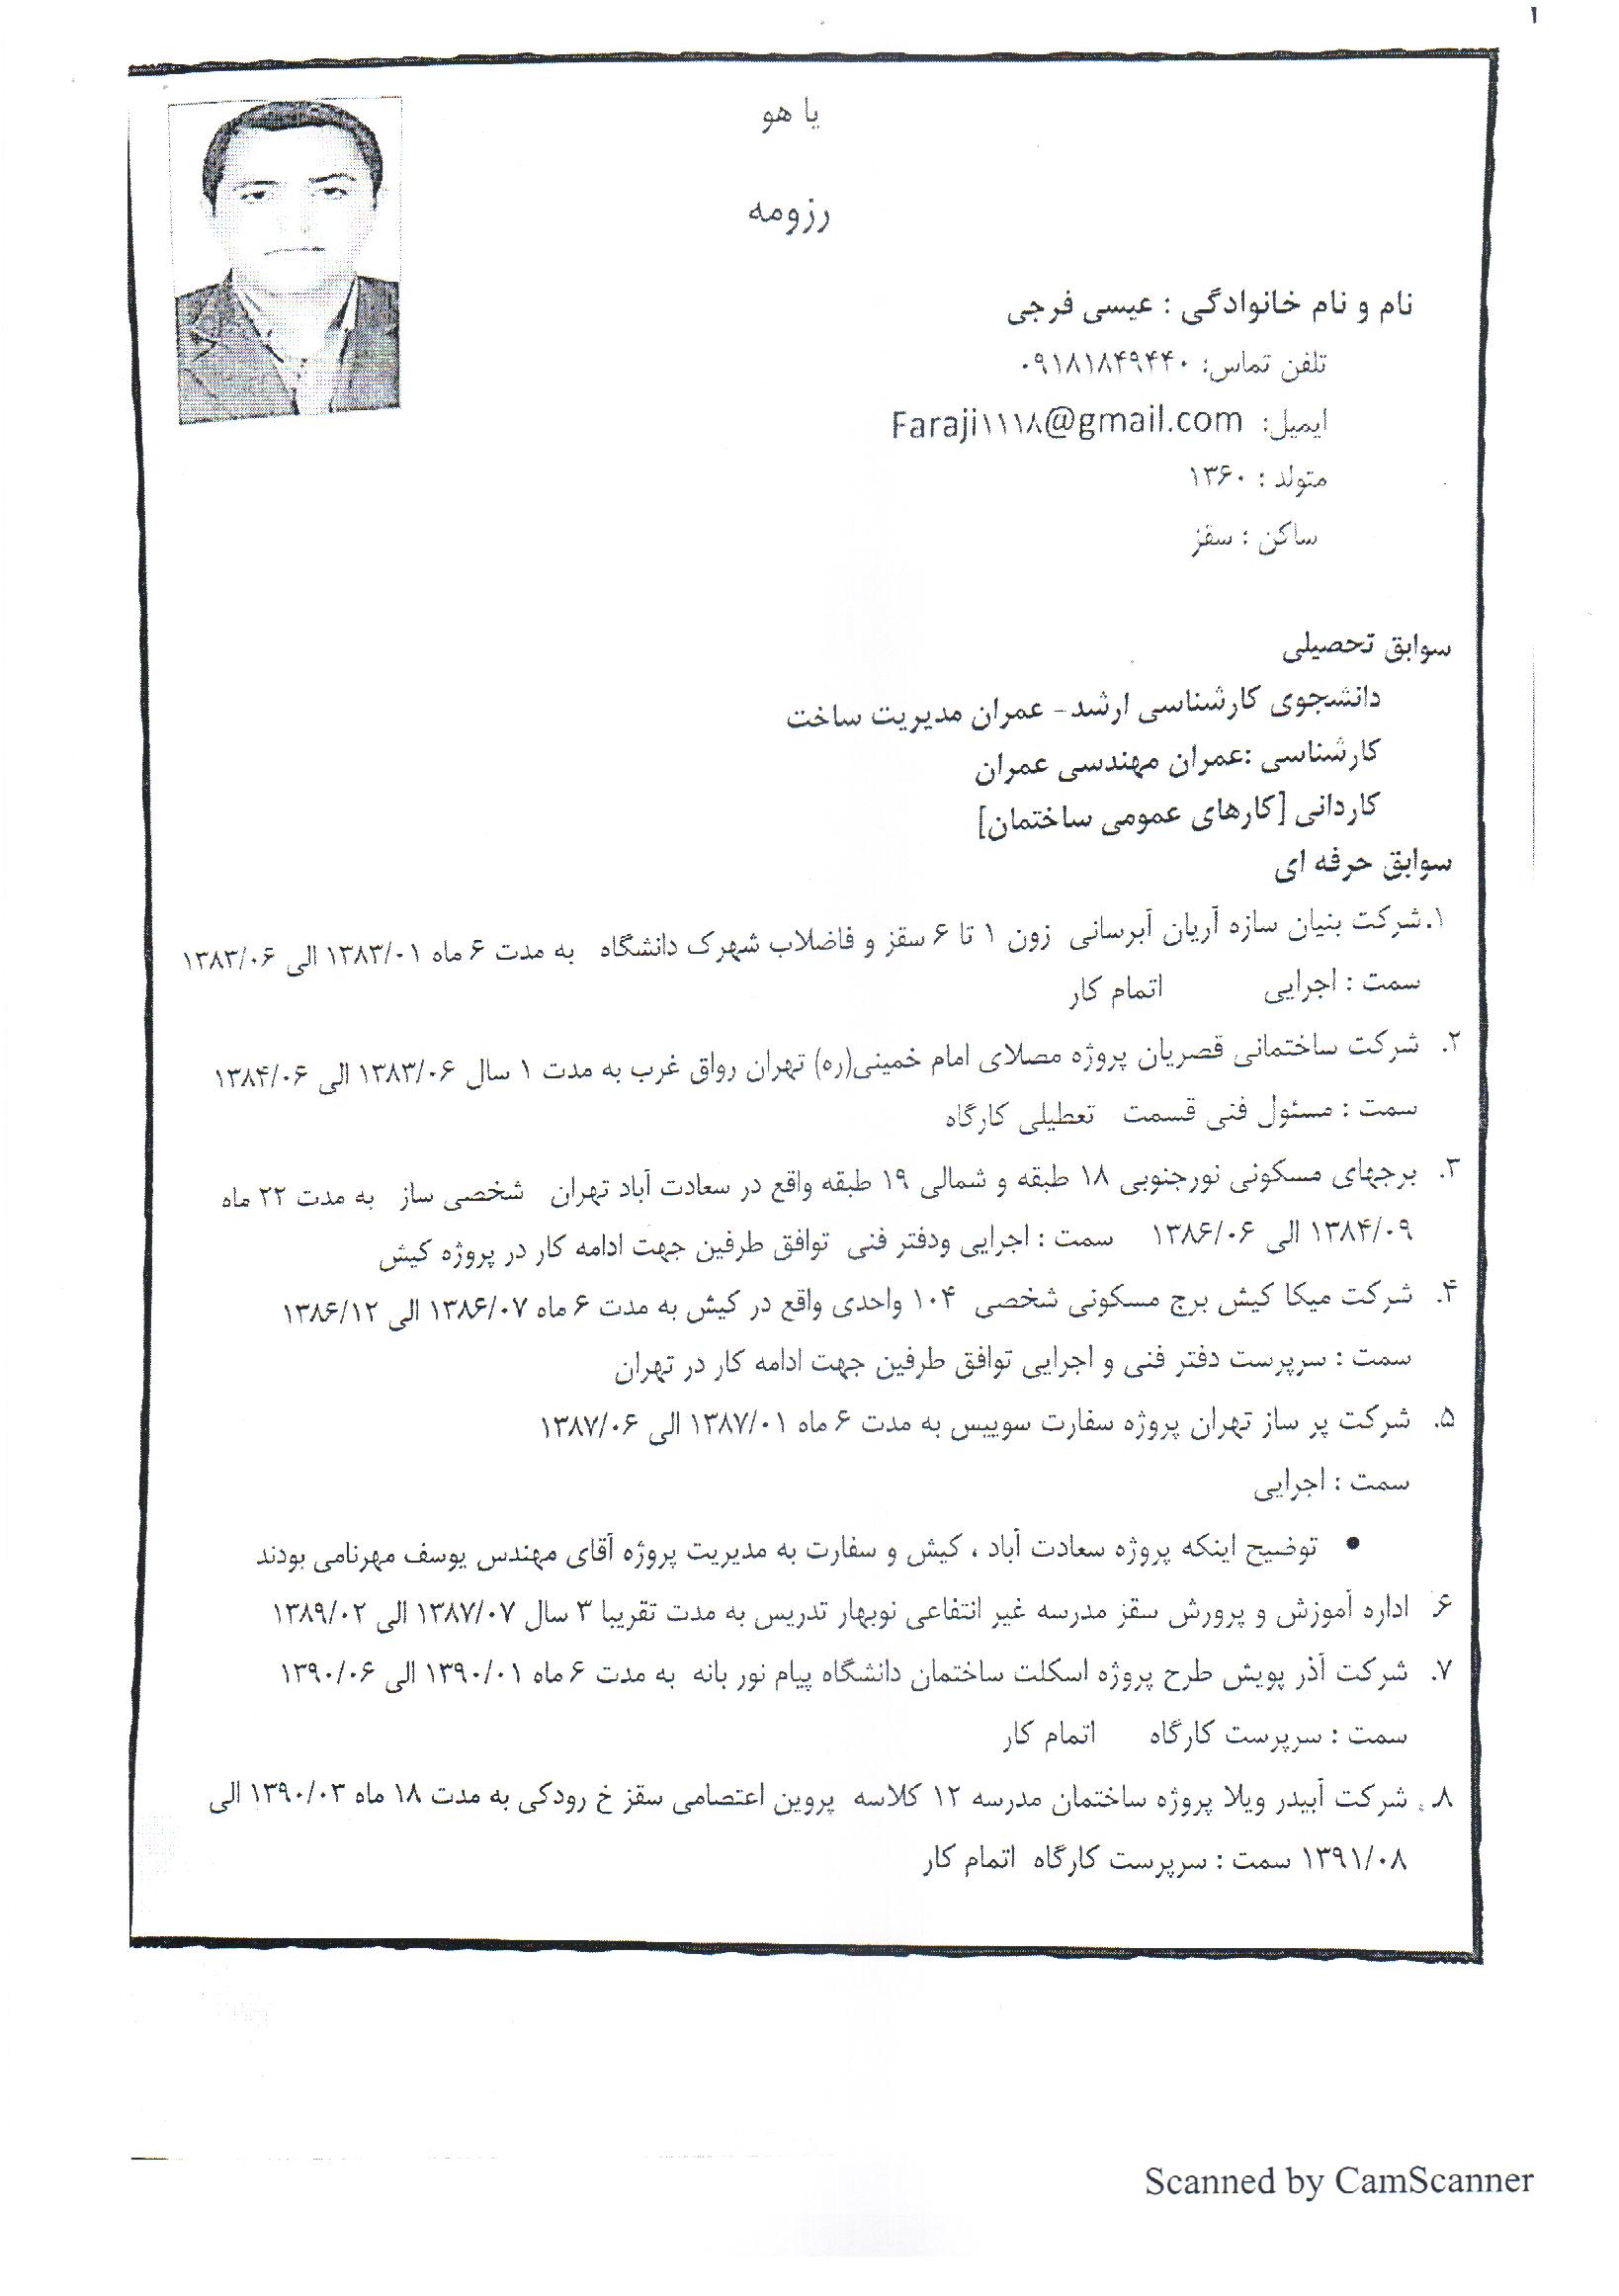 ۱
یا هو
رزومه
نام و نام خانوادگی : عیسی فرجی
تلفن تماس: ۰۹۱۸۱۸۴۹۴۴۰
ایمیل: Faraji۱۱۱۸@gmail.com
متولد : ۱۳۶۰
ساکن : سقز
سوابق تحصیلی
دانشجوی کارشناسی ارشد- عمران مدیریت ساخت
کارشناسی :عمران مهندسی عمران
کاردانی [کارهای عمومی ساختمان]
سوابق حرفه ای
۱.شرکت بنیان سازه آریان آبرسانی زون ۱ تا ۶ سقز و فاضلاب شهرک دانشگاه به مدت ۶ ماه ۱۳۸۳/۰۱ الی ۱۳۸۳/۰۶
سمت : اجرایی اتمام کار
۲. شرکت ساختمانی قصریان پروژه مصلای امام خمینی(ره) تهران رواق غرب به مدت ۱ سال ۱۳۸۳/۰۶ الی ۱۳۸۴/۰۶
سمت : مسئول فنی قسمت تعطیلی کارگاه
۳. برجهای مسکونی نورجنوبی ۱۸ طبقه و شمالی ۱۹ طبقه واقع در سعادت آباد تهران شخصی ساز به مدت ۲۲ ماه
۱۳۸۴/۰۹ الی ۱۳۸۶/۰۶ سمت : اجرایی ودفتر فنی توافق طرفین جهت ادامه کار در پروژه کیش
۴. شرکت میکا کیش برج مسکونی شخصی ۱۰۴ واحدی واقع در کیش به مدت ۶ ماه ۱۳۸۶/۰۷ الی ۱۳۸۶/۱۲
سمت : سرپرست دفتر فنی و اجرایی توافق طرفین جهت ادامه کار در تهران
۵. شرکت پر ساز تهران پروژه سفارت سوییس به مدت ۶ ماه ۱۳۸۷/۰۱ الی ۱۳۸۷/۰۶
سمت : اجرایی
• توضیح اینکه پروژه سعادت آباد ، کیش و سفارت به مدیریت پروژه آقای مهندس یوسف مهرنامی بودند
۶. اداره آموزش و پرورش سقز مدرسه غیر انتفاعی نوبهار تدریس به مدت تقریبا ۳ سال ۱۳۸۷/۰۷ الی ۱۳۸۹/۰۲
۷. شرکت آذر پویش طرح پروژه اسکلت ساختمان دانشگاه پیام نور بانه به مدت ۶ ماه ۱۳۹۰/۰۱ الی ۱۳۹۰/۰۶
سمت : سرپرست کارگاه اتمام کار
۸. شرکت آبیدر ویلا پروژه ساختمان مدرسه ۱۲ کلاسه پروین اعتصامی سقز خ رودکی به مدت ۱۸ ماه ۱۳۹۰/۰۳ الی
۱۳۹۱/۰۸ سمت : سرپرست کارگاه اتمام کار
Scanned by CamScanner